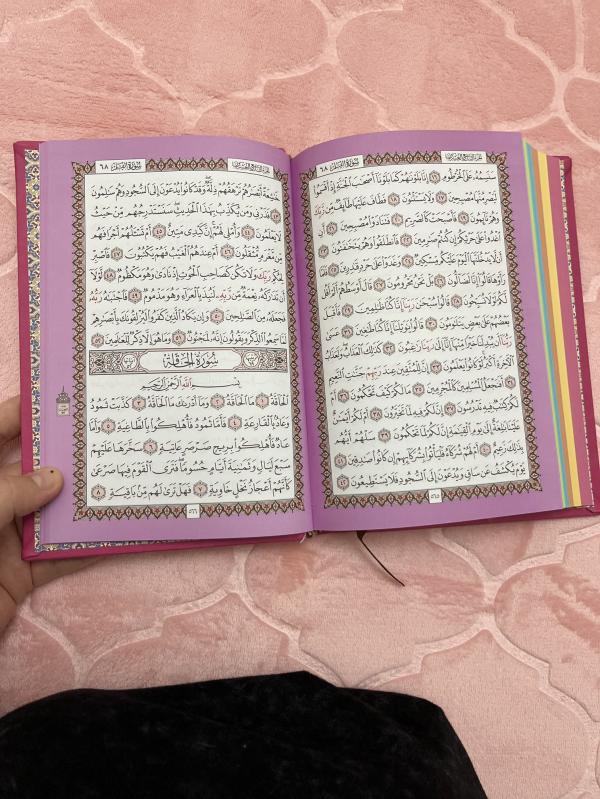 الجزء التاسع والعشرون
سورة القلم ٦٨
سَنَسِمُهُ عَلَى الْخُرْطُومِ ١٦ إِنَّا بَلَوْنَاهُمْ كَمَا بَلَوْنَا أَصْحَابَ الْجَنَّةِ إِذْ أَقْسَمُوا
لَيَصْرِمُنَّهَا مُصْبِحِينَ ١٧ وَلَا يَسْتَثْنُونَ ١٨ فَطَافَ عَلَيْهَا طَائِفٌ مِّن رَّبِّكَ
وَهُمْ نَائِمُونَ ١٩ فَأَصْبَحَتْ كَالصَّرِيمِ ٢٠ فَتَنَادَوْا مُصْبِحِينَ ٢١ أَنِ
اغْدُوا عَلَى حَرْثِكُمْ إِن كُنتُمْ صَارِمِينَ ٢٢ فَانطَلَقُوا وَهُمْ يَتَخَافَتُونَ ٢٣
أَن لَّا يَدْخُلَنَّهَا الْيَوْمَ عَلَيْكُم مِّسْكِينٌ ٢٤ وَغَدَوْا عَلَى حَرْدٍ قَادِرِينَ ٢٥ فَلَمَّا
رَأَوْهَا قَالُوا إِنَّا لَضَالُّونَ ٢٦ بَلْ نَحْنُ مَحْرُومُونَ ٢٧ قَالَ أَوْسَطُهُمْ أَلَمْ أَقُل
لَّكُمْ لَوْلَا تُسَبِّحُونَ ٢٨ قَالُوا سُبْحَانَ رَبِّنَا إِنَّا كُنَّا ظَالِمِينَ ٢٩ فَأَقْبَلَ
بَعْضُهُمْ عَلَى بَعْضٍ يَتَلَاوَمُونَ ٣٠ قَالُوا يَا وَيْلَنَا إِنَّا كُنَّا طَاغِينَ ٣١ عَسَى
رَبُّنَا أَن يُبْدِلَنَا خَيْرًا مِّنْهَا إِنَّا إِلَى رَبِّنَا رَاغِبُونَ ٣٢ كَذَلِكَ الْعَذَابُ وَلَعَذَابُ
الْآخِرَةِ أَكْبَرُ لَوْ كَانُوا يَعْلَمُونَ ٣٣ إِنَّ لِلْمُتَّقِينَ عِندَ رَبِّهِمْ جَنَّاتِ النَّعِيمِ
٣٤ أَفَنَجْعَلُ الْمُسْلِمِينَ كَالْمُجْرِمِينَ ٣٥ مَا لَكُمْ كَيْفَ تَحْكُمُونَ ٣٦ أَمْ
لَكُمْ كِتَابٌ فِيهِ تَدْرُسُونَ ٣٧ إِنَّ لَكُمْ فِيهِ لَمَا تَخَيَّرُونَ ٣٨ أَمْ لَكُمْ أَيْمَانٌ
عَلَيْنَا بَالِغَةٌ إِلَى يَوْمِ الْقِيَامَةِ إِنَّ لَكُمْ لَمَا تَحْكُمُونَ ٣٩ سَلْهُمْ أَيُّهُم
بِذَلِكَ زَعِيمٌ ٤٠ أَمْ لَهُمْ شُرَكَاءُ فَلْيَأْتُوا بِشُرَكَائِهِمْ إِن كَانُوا صَادِقِينَ ٤١
يَوْمَ يُكْشَفُ عَن سَاقٍ وَيُدْعَوْنَ إِلَى السُّجُودِ فَلَا يَسْتَطِيعُونَ ٤٢
٥٦٥
الجزء التاسع والعشرون
سورة القلم ٦٨
خَاشِعَةً أَبْصَارُهُمْ تَرْهَقُهُمْ ذِلَّةٌ وَقَدْ كَانُوا يُدْعَوْنَ إِلَى السُّجُودِ وَهُمْ سَالِمُونَ
٤٣ فَذَرْنِي وَمَن يُكَذِّبُ بِهَذَا الْحَدِيثِ سَنَسْتَدْرِجُهُم مِّنْ حَيْثُ
لَا يَعْلَمُونَ ٤٤ وَأُمْلِي لَهُمْ إِنَّ كَيْدِي مَتِينٌ ٤٥ أَمْ تَسْأَلُهُمْ أَجْرًا فَهُم
مِّن مَّغْرَمٍ مُّثْقَلُونَ ٤٦ أَمْ عِندَهُمُ الْغَيْبُ فَهُمْ يَكْتُبُونَ ٤٧ فَاصْبِرْ
لِحُكْمِ رَبِّكَ وَلَا تَكُن كَصَاحِبِ الْحُوتِ إِذْ نَادَى وَهُوَ مَكْظُومٌ ٤٨ لَّوْلَا
أَن تَدَارَكَهُ نِعْمَةٌ مِّن رَّبِّهِ لَنُبِذَ بِالْعَرَاءِ وَهُوَ مَذْمُومٌ ٤٩ فَاجْتَبَاهُ رَبُّهُ
فَجَعَلَهُ مِنَ الصَّالِحِينَ ٥٠ وَإِن يَكَادُ الَّذِينَ كَفَرُوا لَيُزْلِقُونَكَ بِأَبْصَارِهِمْ
لَمَّا سَمِعُوا الذِّكْرَ وَيَقُولُونَ إِنَّهُ لَمَجْنُونٌ ٥١ وَمَا هُوَ إِلَّا ذِكْرٌ لِّلْعَالَمِينَ ٥٢
سُورَةُ الْحَاقَّةِ
بِسْمِ اللَّهِ الرَّحْمَنِ الرَّحِيمِ
الْحَاقَّةُ ١ مَا الْحَاقَّةُ ٢ وَمَا أَدْرَاكَ مَا الْحَاقَّةُ ٣ كَذَّبَتْ ثَمُودُ
وَعَادٌ بِالْقَارِعَةِ ٤ فَأَمَّا ثَمُودُ فَأُهْلِكُوا بِالطَّاغِيَةِ ٥ وَأَمَّا
عَادٌ فَأُهْلِكُوا بِرِيحٍ صَرْصَرٍ عَاتِيَةٍ ٦ سَخَّرَهَا عَلَيْهِمْ
سَبْعَ لَيَالٍ وَثَمَانِيَةَ أَيَّامٍ حُسُومًا فَتَرَى الْقَوْمَ فِيهَا صَرْعَى
كَأَنَّهُمْ أَعْجَازُ نَخْلٍ خَاوِيَةٍ ٧ فَهَلْ تَرَى لَهُم مِّن بَاقِيَةٍ ٨
٥٦٦